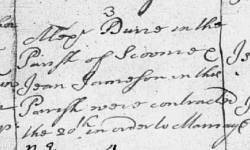 3
Alexr Durre in the
Parish of Scoone &
Jean Jameson in this
Parish were contracted
the 20th in order to Marriage